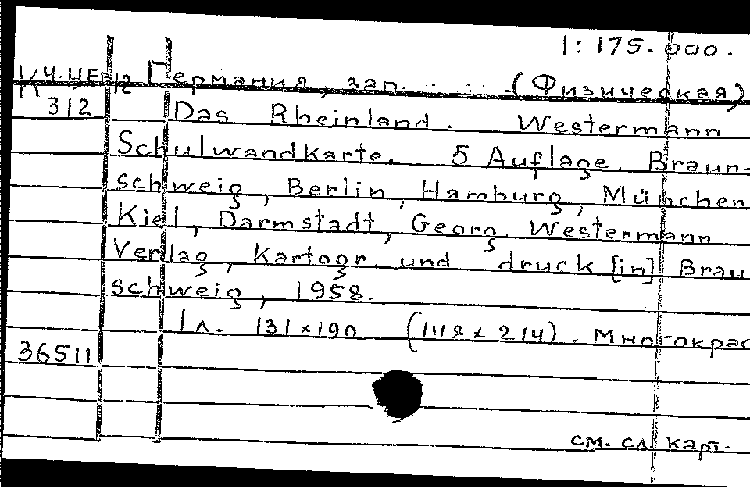 1:175.000.
К Ч-ЦЕ/12 Германия, зап. . . . (Физическая)
312 Das Rheinland. Westermann
Schulwandkarte. 5 Auflage. Braun-
schweig, Berlin, Hamburg, München
Kiel, Darmstadt, Georg Westermann
Verlag, Kartogr. und druck [in] Brau
schweig, 1958.
1 л. 131×190 (148×214). Многокрас
36511
см. сл. карт.